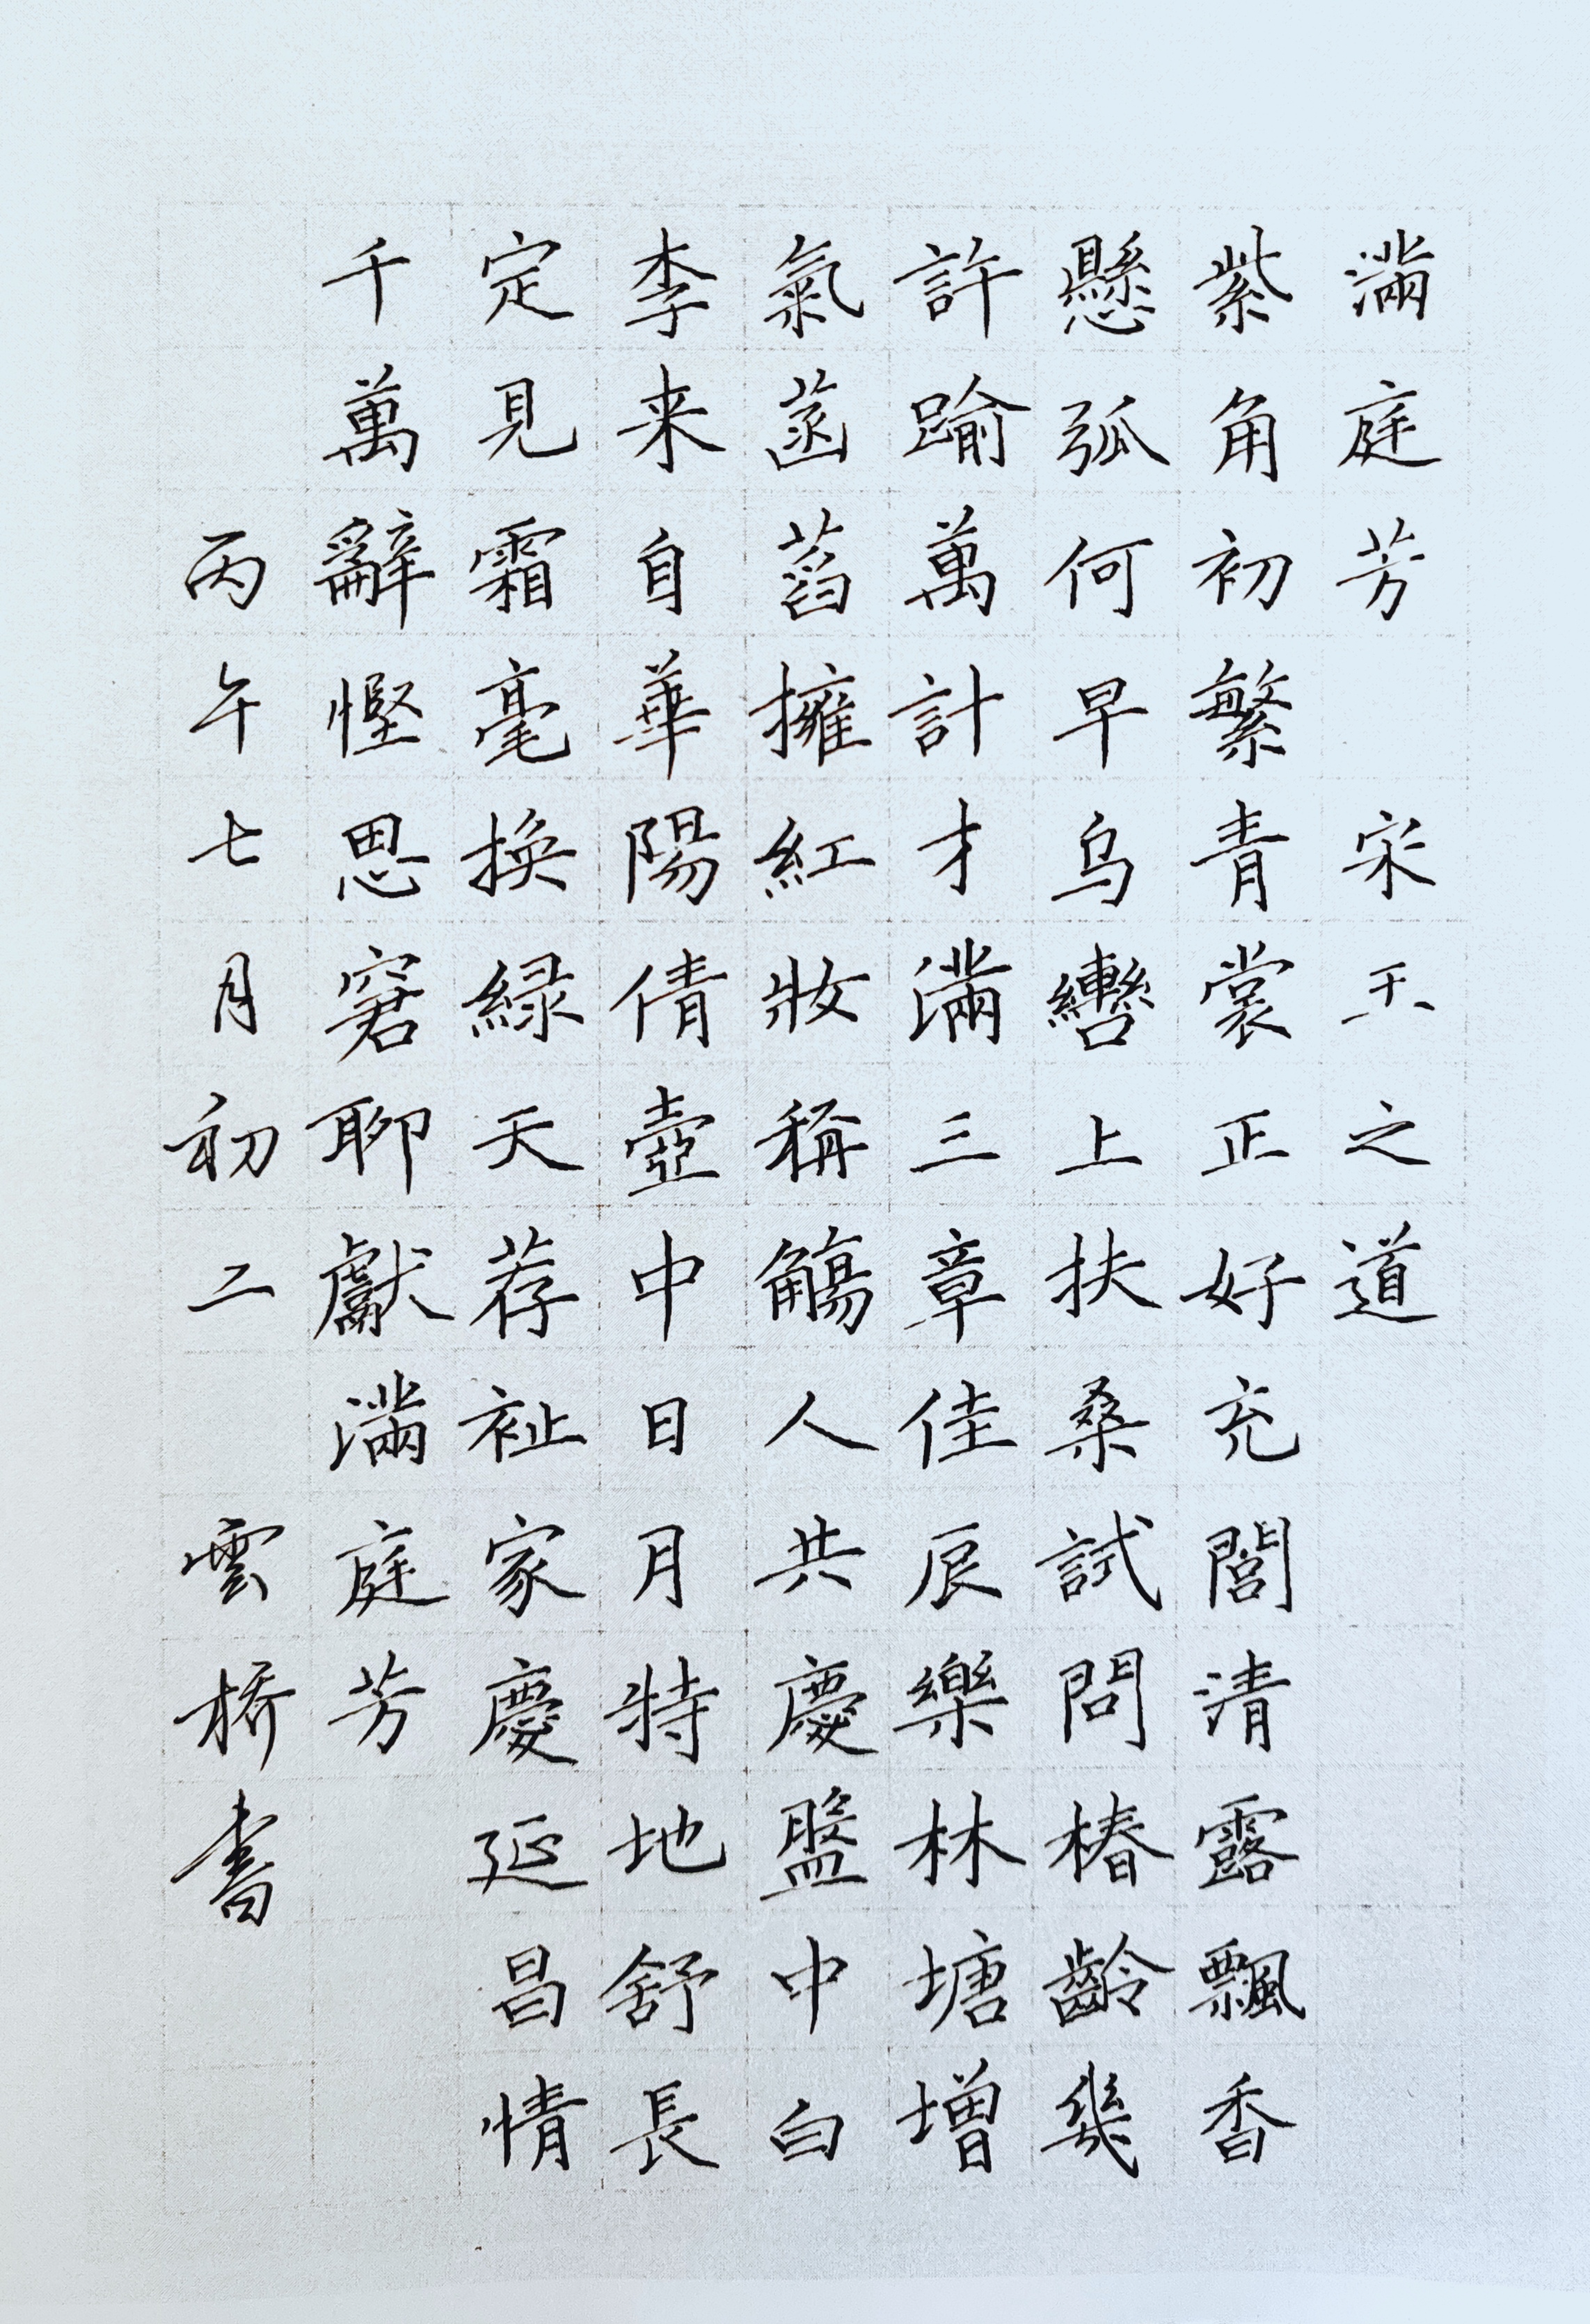 滿庭芳 宋 王之道
紫角初繁青裳正好充閭清露飄香
懸弧何早乌轡上扶桑試問椿齡幾
許踰萬計才滿三章佳辰樂林塘增
氣菡萏擁紅妝稱觴人共慶盤中白
李来自華陽倩壺中日月特地舒長
定見霜毫換緑天荐祉家慶延昌情
千萬辭慳思窘聊獻滿庭芳
丙午七月初二 雲桥書